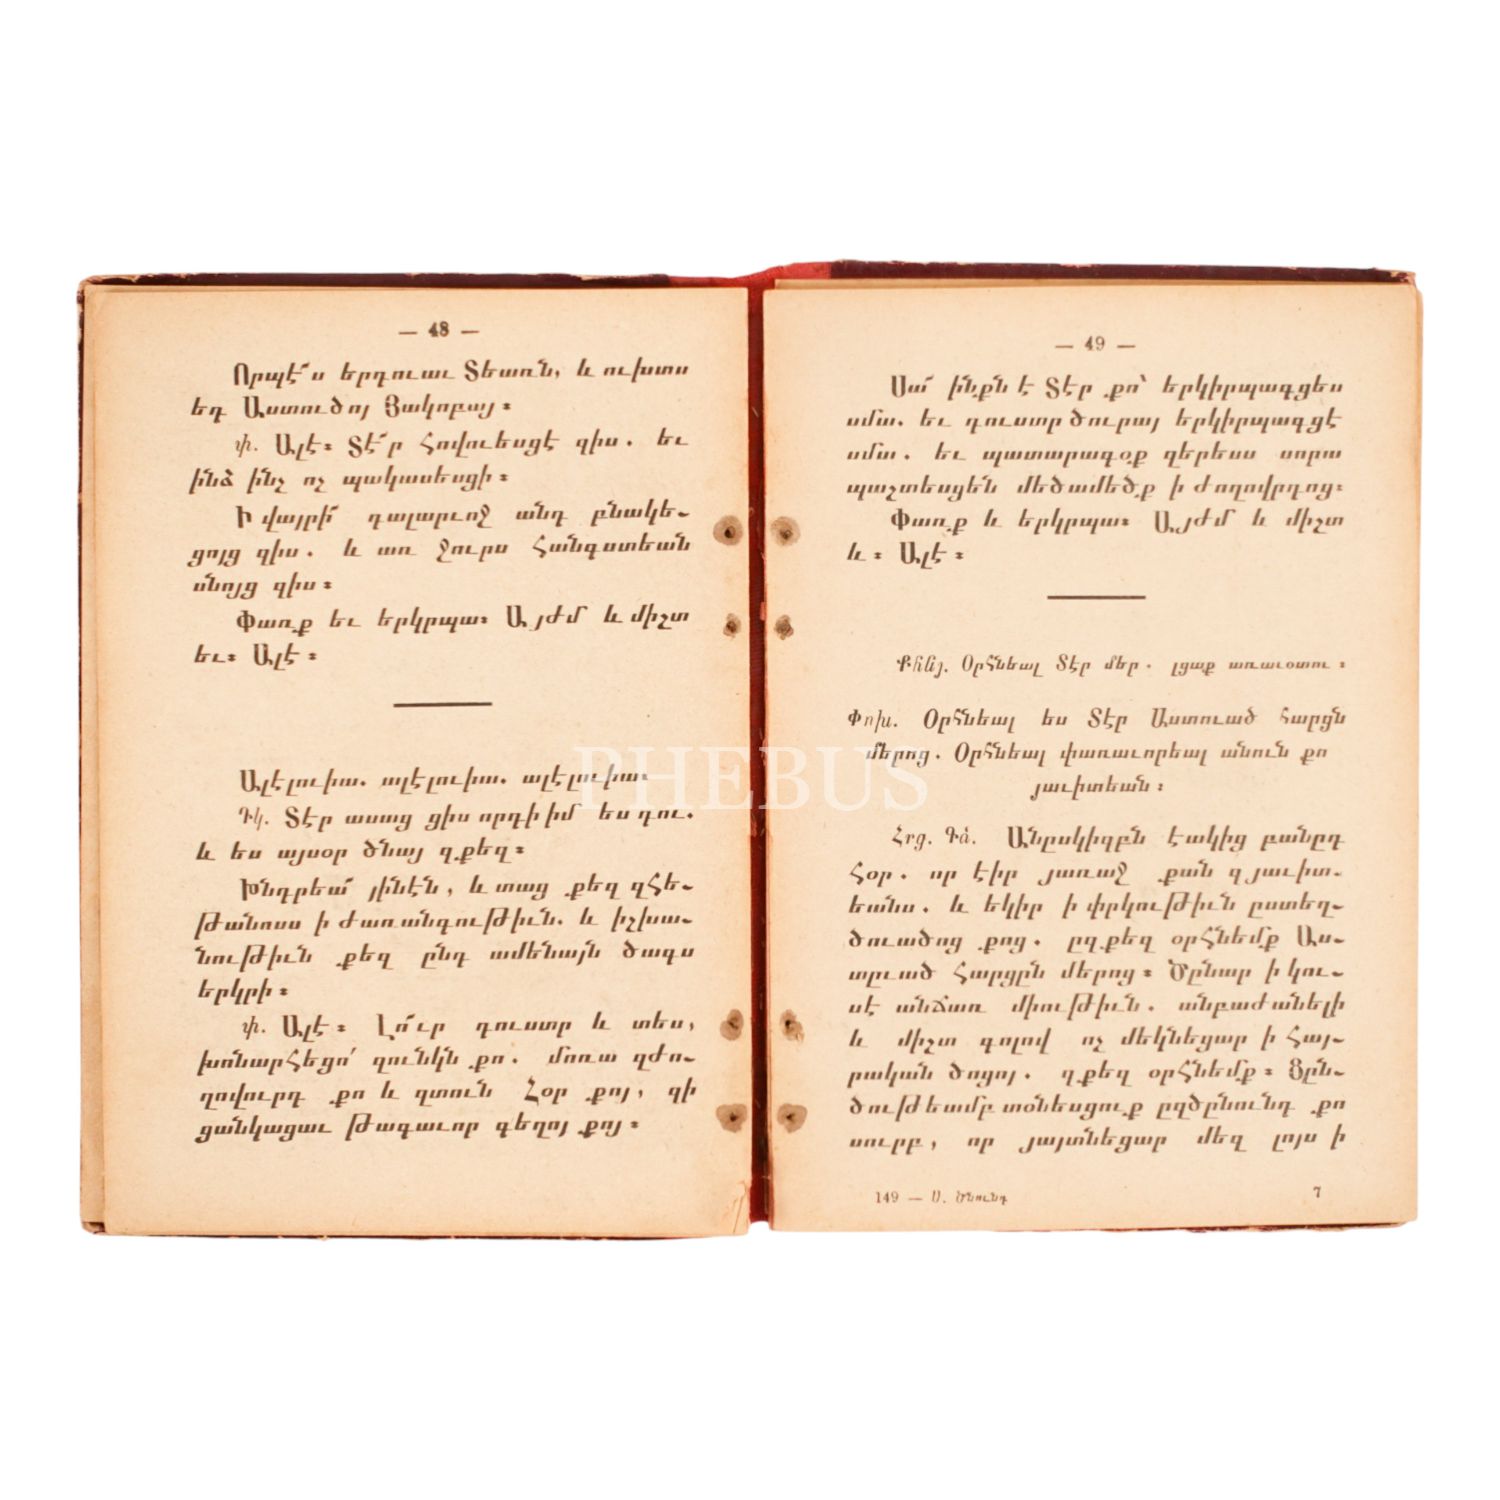 — 48 —
Որպէ՞ս երդուաւ Տեառն, և ուխտս
եդ Աստուծոյ Յակոբայ։
փ. Ալէ։ Տէ՛ր Հովուեսցէ զիս. եւ
ինձ ինչ ոչ պակասեսցի։
Ի վայրի՛ դալարւոջ անդ բնակե-
ցոյց զիս. և առ ջուրս Հանգստեան
սնոյց զիս։
Փառք եւ երկրպա։ Այժմ և միշտ
եւ։ Ալէ։
Ալէլուիա. ալէլուիա. ալէլուիա.
Դկ. Տէր ասաց ցիս որդի իմ ես դու.
և ես այսօր ծնայ զքեզ։
Խնդրեա՛ յինէն, և տաց քեզ զՀե-
թանոսս ի ժառանգութիւն. և իշխա-
նութիւն քեզ ընդ ամենայն ծագս
երկրի։
փ. Ալէ։ Լո՛ւր դուստր և տես,
խոնարՀեցո՛ զունկն քո. մոռա զժո-
ղովուրդ քո և զտուն Հօր քոյ, զի
ցանկացաւ թագաւոր գեղոյ քոյ։
— 49 —
Սա՛ ինքն է Տէր քո՝ երկիրպագցես
սմա. եւ դուստր ծուրայ երկիրպագցէ
սմա. եւ պատարագօք զերեսս սորա
պաշտեսցեն մեծամեծք ի ժողովրդոց։
Փառք և երկրպա։ Այժմ և միշտ
և։ Ալէ։
Քհնյ. Օրհնեալ Տէր մեր. լցաք առաւօտու։
Փոխ. Օրհնեալ ես Տէր Աստուած հարցն
մերոց. Օրհնեալ փառաւորեալ անուն քո
յաւիտեան։
Հրց. Գձ. Անըսկիզբն էակից բանըդ
Հօր. որ էիր յառաջ քան զյաւիտ-
եանս. և եկիր ի փրկութիւն ըստեղ-
ծուածոց քոց. ըզքեզ օրհնեմք Աս-
տըւած Հարցըն մերոց։ Ծընար ի կու-
սէ անճառ միութիւն. անբաժանելի
և միշտ գոլով ոչ մեկնեցար ի Հայ-
րական ծոցոյ. զքեզ օրհնեմք։ Ցըն-
ծութեամբ տօնեսցուք ըզծընունդ քո
սուրբ, որ յայտնեցար մեզ լոյս ի
149 — Ս. Ծնունդ 7
PHEBUS